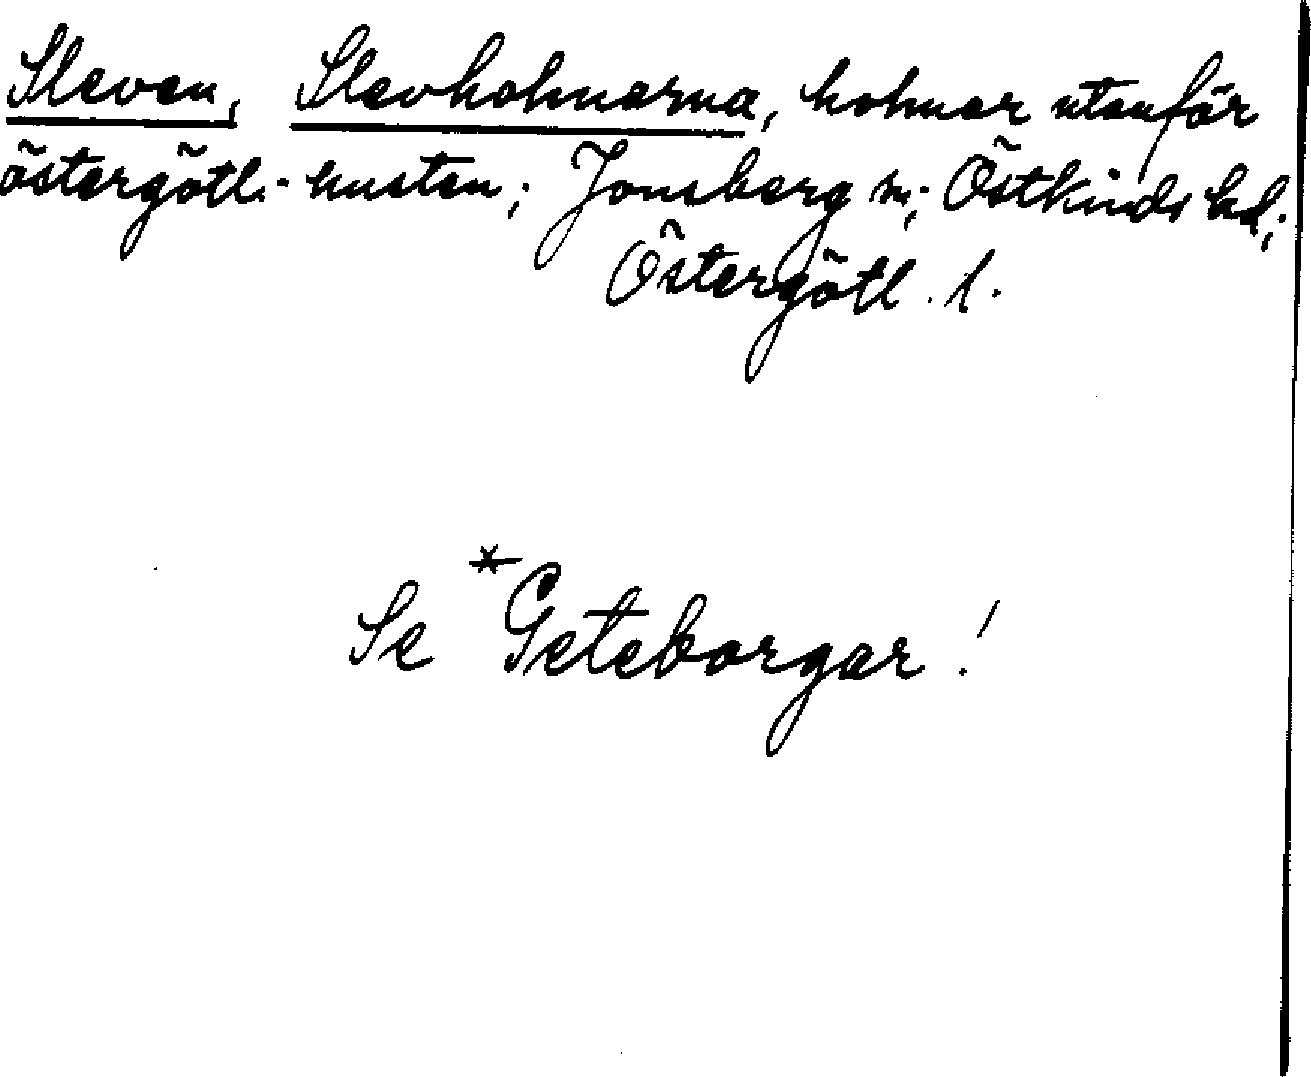 Sleven, Slevholmarna, holmar utanför
östergötl.-kusten; Jonsberg sn; Östkinds hd;
Östergötl. l.
Se *Geteborgar!